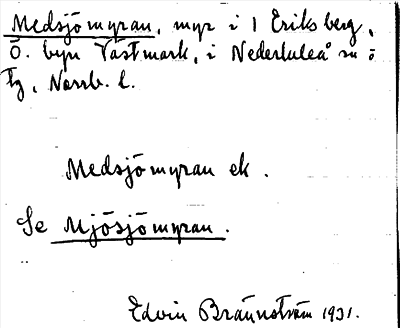 Medsjömyran, myr i 1 Eriksberg,
Ö. byn Västmark, i Nederluleå sn ö
tg, Norrb. l.
Medsjömyran ek.
Se Mjösjömyran.
Edvin Brännström 1931.